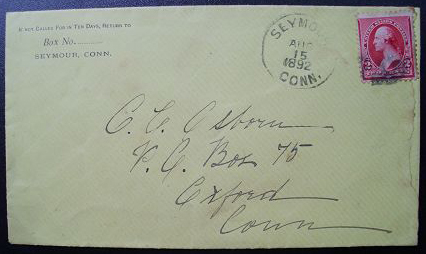 IF NOT CALLED FOR IN TEN DAYS, RETURN TO
Box No.
SEYMOUR, CONN.
SEYMOUR
AUG
15
1892
CONN.
2 2
C. E. Osborn
P. O. Box 75
Oxford
Conn